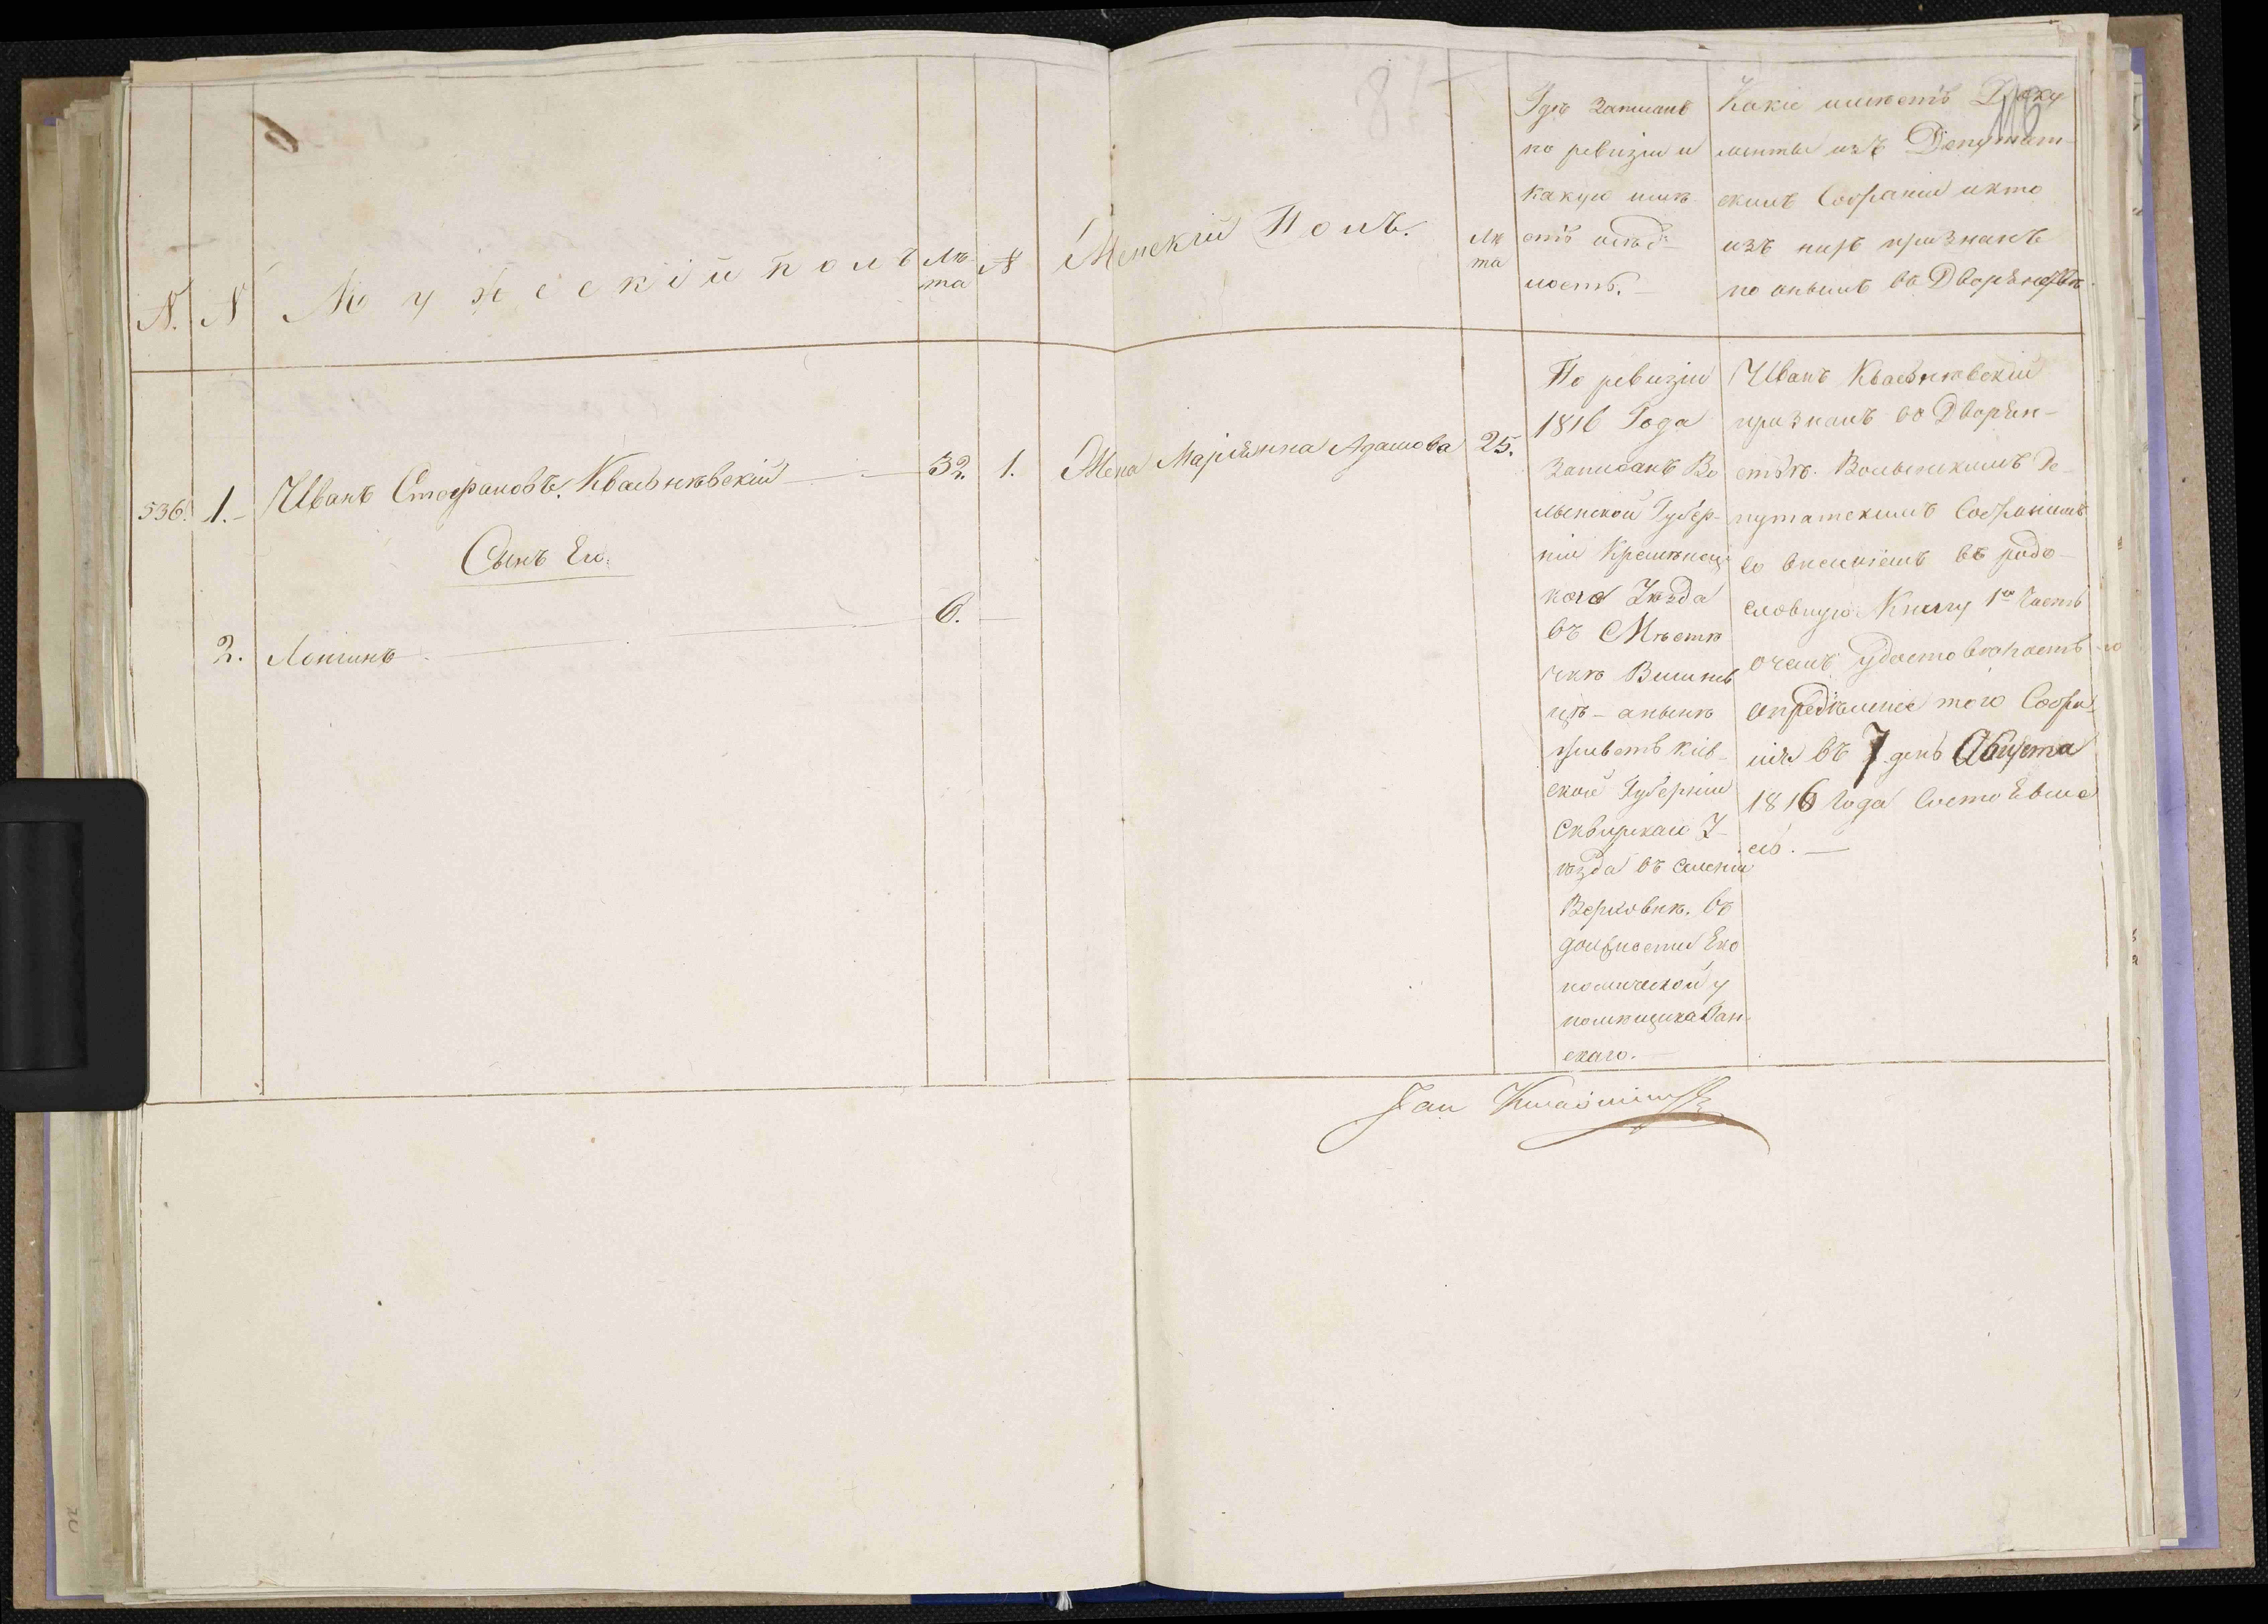 116
N. N Мужескій полъ Лѣта N Женскій Полъ. Лѣта
Гдѣ записанъ
по ревизіи и
какую имѣ-
етъ осѣд-
лость.
Какіе имѣетъ Доку
менты изъ Депутат-
скимъ Собраніи икто
изъ нихъ признанъ
по онымъ въ Дворянствѣ.
536. 1. Иванъ Стефановъ Квасьнѣвскій 32. 1. Жена Маріянна Адамова 25.
Сынъ Его.
2. Лонгинъ 6.
По ревизіи
1816 Года
Записанъ Во
лынской Губер-
ніи Кременец-
кого Уѣзда
въ Мѣсте
чкѣ Вишнѣв
цѣ - анынѣ
живетъ Кіев-
ской Губерніи
Сквирскаго У-
ѣзда въ селеніи
Верховнѣ. въ
должности Еко
номической у
помѣщика Ган-
скаго.
Иванъ Квасьнѣвскій
признанъ въ Дворян-
ствѣ. Волынскимъ Де-
путатскимъ Собраніемъ
со внесеніемъ въ родо-
словную Книгу 1ю Часть
очемъ удостовѣраетъ
опредѣленіе того Собра-
нія въ 7 день Августа
1816 Года Состоявшее
ся.
Jan Kwaśniewski